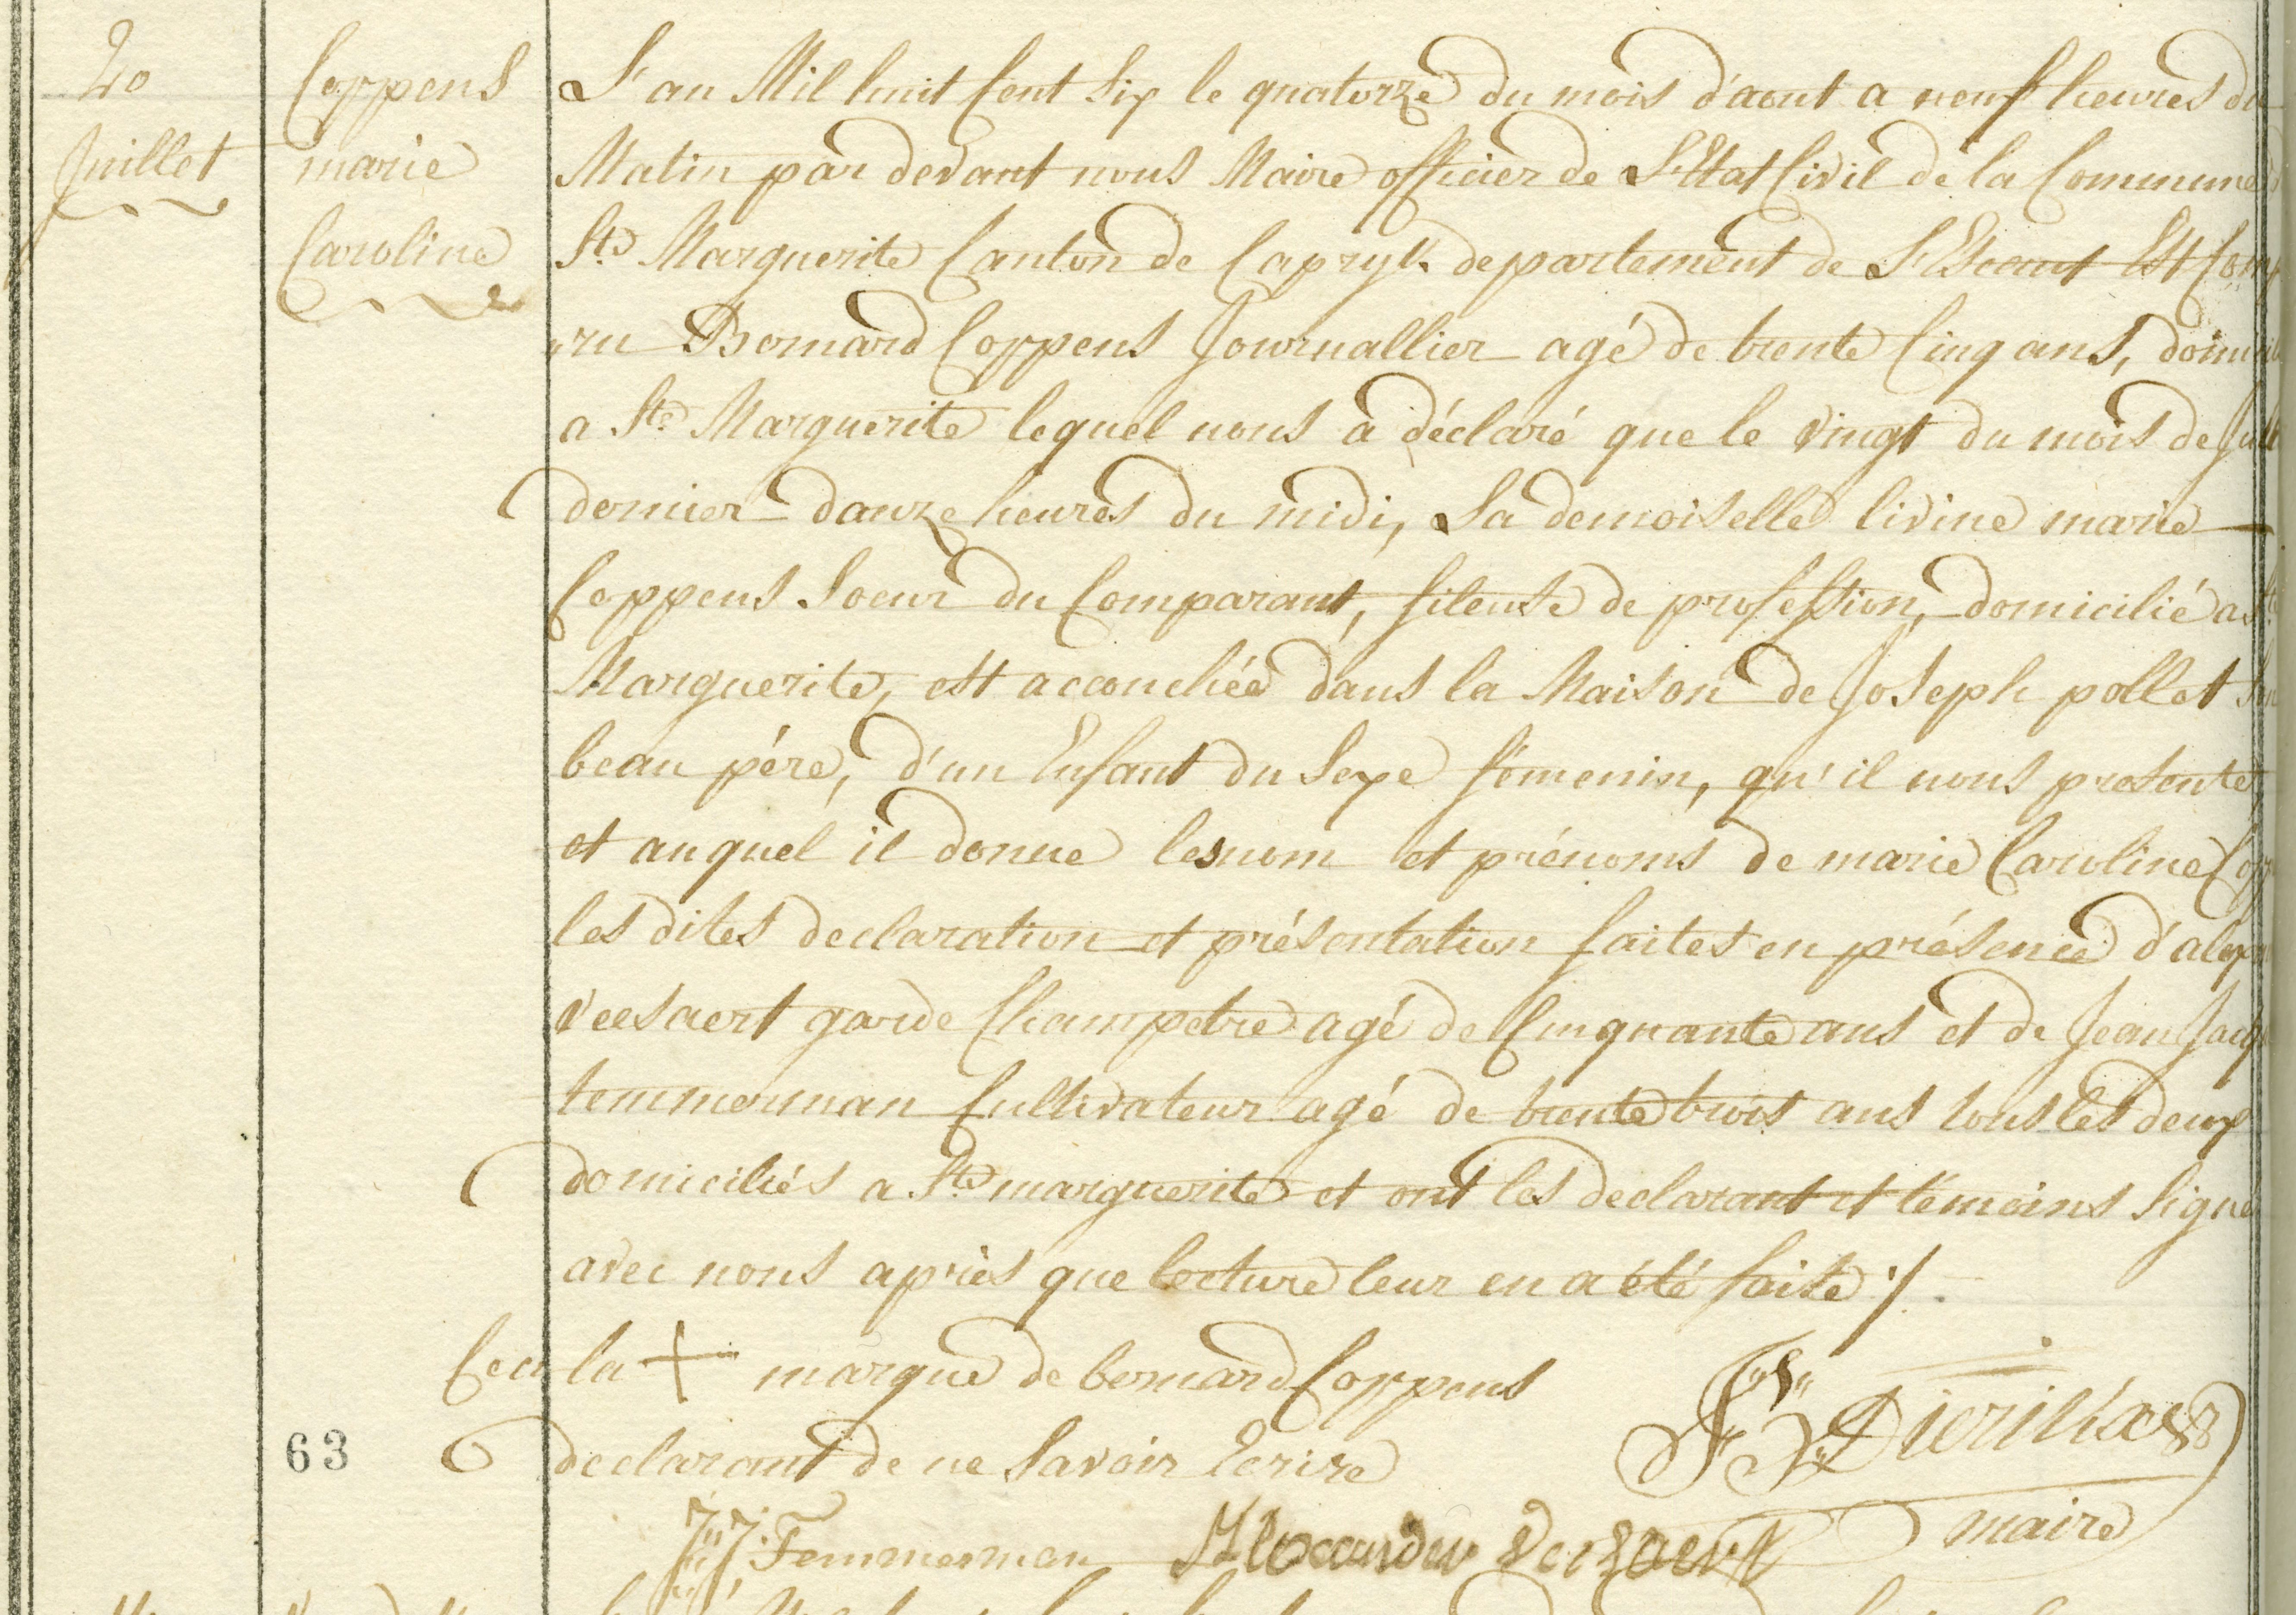 20
Juillet
Coppens
marie
Caroline
L'an Mil huit Cent Six le quatorze du mois d'aout a neuf heures du
Matin par devant nous Maire officier de L'Etat Civil de la Commune
Ste Marguerite Canton de Capryk departement de L'Escaut Est Comp
ru Bernard Coppens Journallier agé de trente Cinq ans, domicil
a Ste Marguerite lequel nous a déclaré que le vingt du mois de Juill
dernier douze heures du midi, La demoiselle livine marie
Coppens Soeur du Comparant, fileuse de profession, domicilié a Ste
Marguerite, est accouchée dans la Maison de Joseph pollet Son
beau père, d'un Enfant du Sexe fémenin, qu'il nous presente,
et auquel il donne les nom et prénoms de marie Caroline Copp
les dites declaration et présentation faites en présence d'alex
veesaert garde Champetre agé de Cinquante ans et de Jean Jacq
temmerman Cultivateur agé de trente trois ans tous les deux
domiciliés a Ste marguerite et ont les declarant et témoins Signé
avec nous après que lecture leur en a été faite ./.
Ceci la + marque de bernard Coppens
declarant de ne Savoir Ecrire
63
maire
J: J: Temmerman Alexander Veesaert